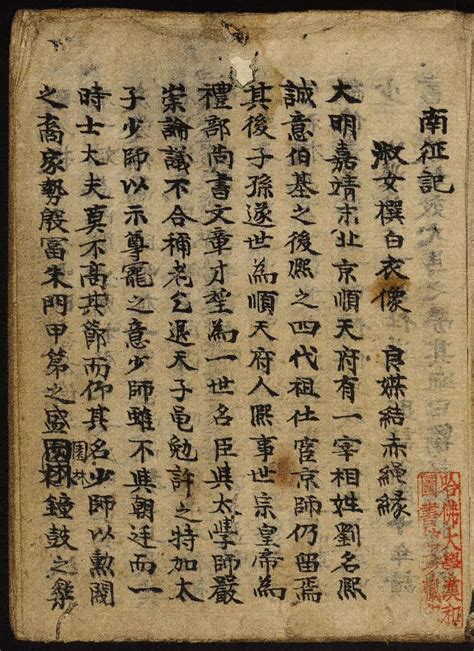 南征記
淑女撰白衣像　良媒結赤繩緣
大明嘉靖末北京順天府有一宰相姓劉名熙
誠意伯基之後熙之四代祖仕宦京師仍留焉
其後子孫遂世為順天府人熙事世宗皇帝為
禮部尚書文章才望為一世名臣與太學師嚴
崇論議不合稱老乞退天子黽勉許之特加太
子少師以示尊寵之意少師雖不與朝廷而一
時士大夫莫不高其節而仰其名少師以勲閥
之裔家勢殷富朱門甲第之盛園林鐘鼓之樂
園林
哈佛大學漢和
圖書